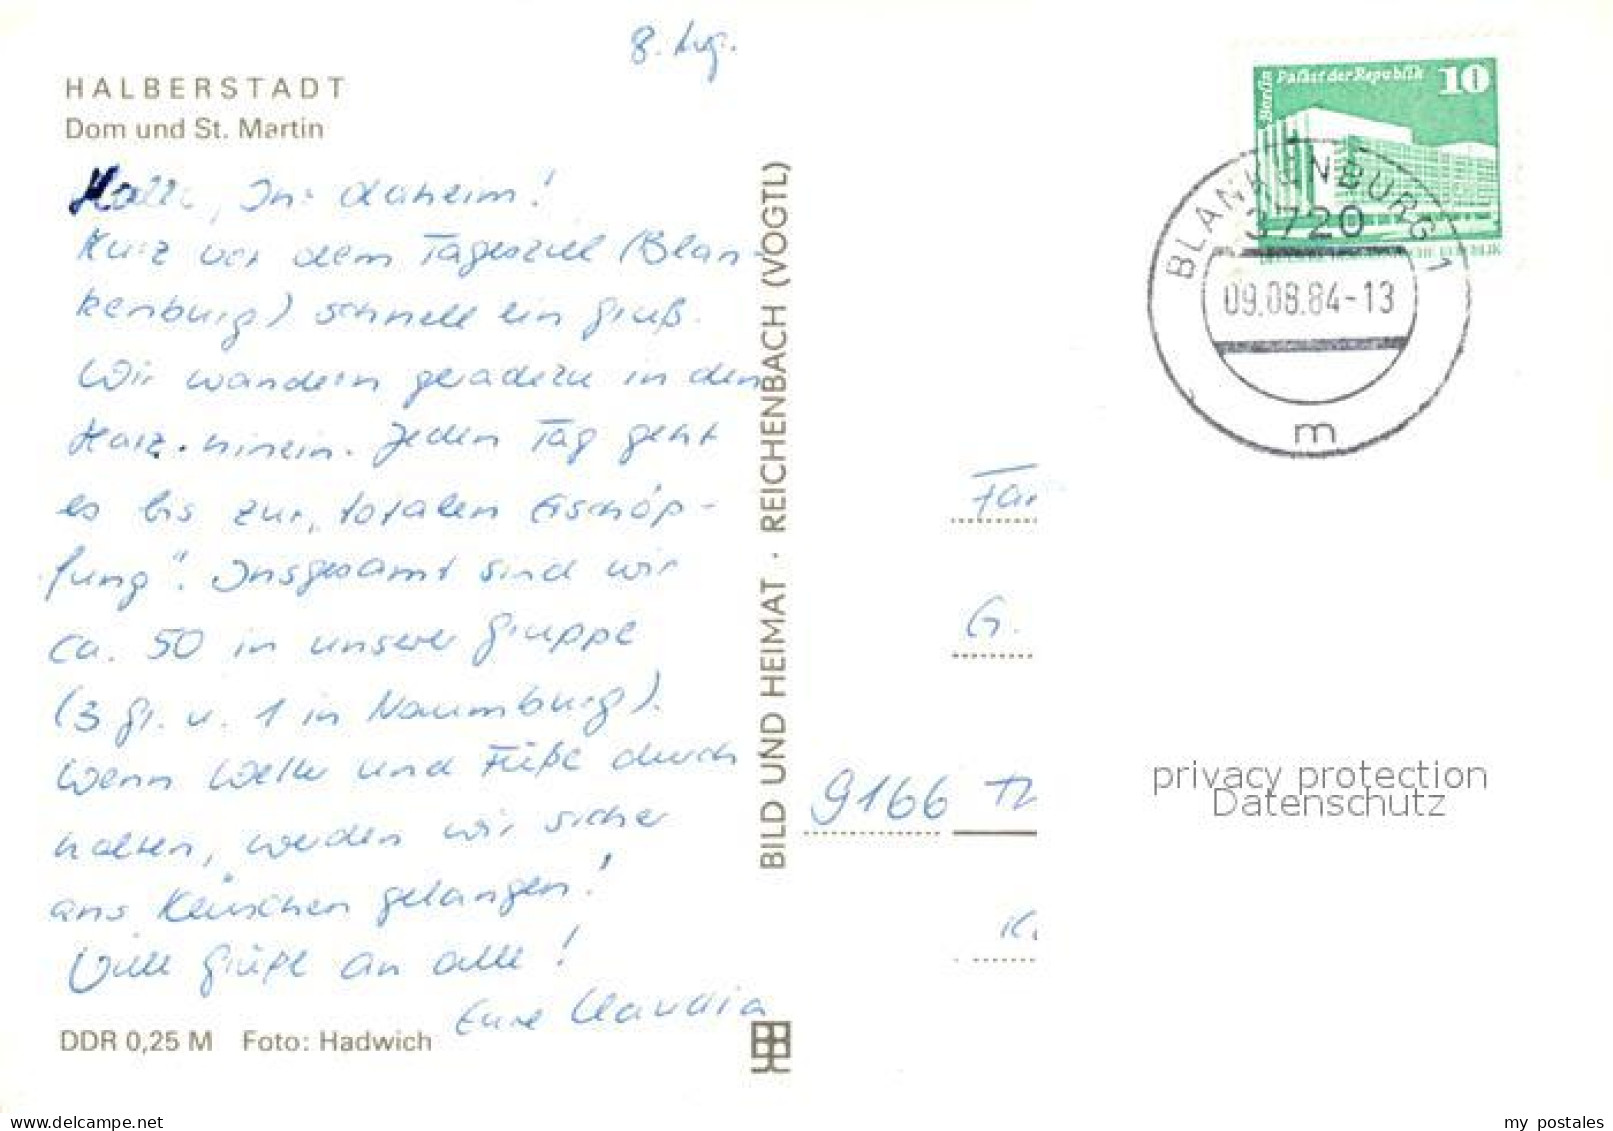 8. Aug.
HALBERSTADT
Dom und St. Martin
Hallo, Ihr daheim!
Kurz vor dem Tagesziel (Blan-
kenburg) schnell ein Gruß.
Wir wandern geradezu in den
Harz hinein. Jeden Tag geht
es bis zur „totalen Erschöp-
fung". Insgesamt sind wir
ca. 50 in unserer Gruppe
(3 Gr. u. 1 in Naumburg).
Wenn Wetter und Füße durch
halten, werden wir sicher
ans gelangen!
Viele Grüße an alle!
Eure Claudia
DDR 0,25 M Foto: Hadwich
BILD UND HEIMAT · REICHENBACH (VOGTL)
Berlin Palast der Republik 10
BLANKENBURG 1
3720
09.08.84-13
m
Fam
G.
9166
K.
privacy protection
Datenschutz
www.delcampe.net
my postales